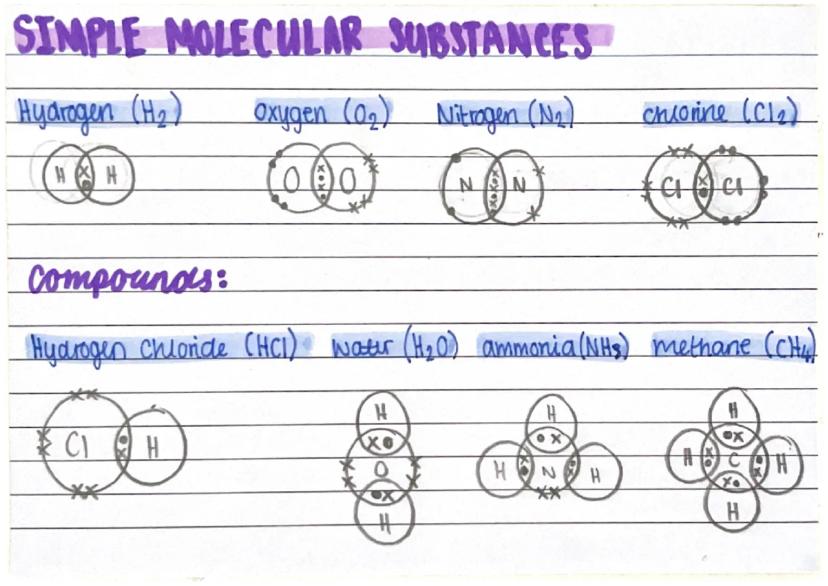 SIMPLE MOLECULAR SUBSTANCES
Hydrogen (H₂) oxygen (O₂) Nitrogen (N₂) chlorine (Cl₂)
H H O O N N Cl Cl
Compounds:
Hydrogen chloride (HCl) water (H₂O) ammonia (NH₃) methane (CH₄)
H H H
Cl H O H N H H C H
H H